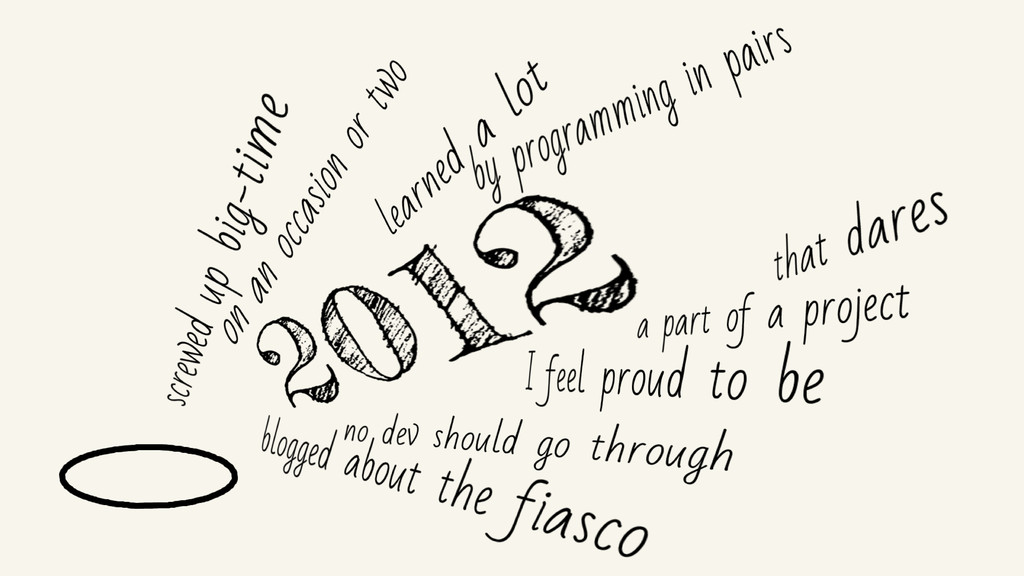 screwed up big-time
on an occasion or two
learned a lot
by programming in pairs
2012
that dares
a part of a project
I feel proud to be
no dev should go through
blogged about the fiasco